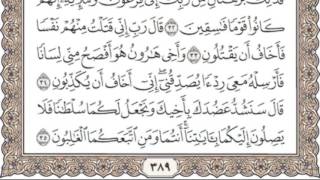 كَانُوا۟ قَوْمًا فَـٰسِقِينَ ٣٢ قَالَ رَبِّ إِنِّى قَتَلْتُ مِنْهُمْ نَفْسًا
فَأَخَافُ أَن يَقْتُلُونِ ٣٣ وَأَخِى هَـٰرُونُ هُوَ أَفْصَحُ مِنِّى لِسَانًا
فَأَرْسِلْهُ مَعِىَ رِدْءًا يُصَدِّقُنِىٓ إِنِّىٓ أَخَافُ أَن يُكَذِّبُونِ ٣٤
قَالَ سَنَشُدُّ عَضُدَكَ بِأَخِيكَ وَنَجْعَلُ لَكُمَا سُلْطَـٰنًا فَلَا
يَصِلُونَ إِلَيْكُمَا بِـَٔايَـٰتِنَآ أَنتُمَا وَمَنِ ٱتَّبَعَكُمَا ٱلْغَـٰلِبُونَ ٣٥
٣٨٩